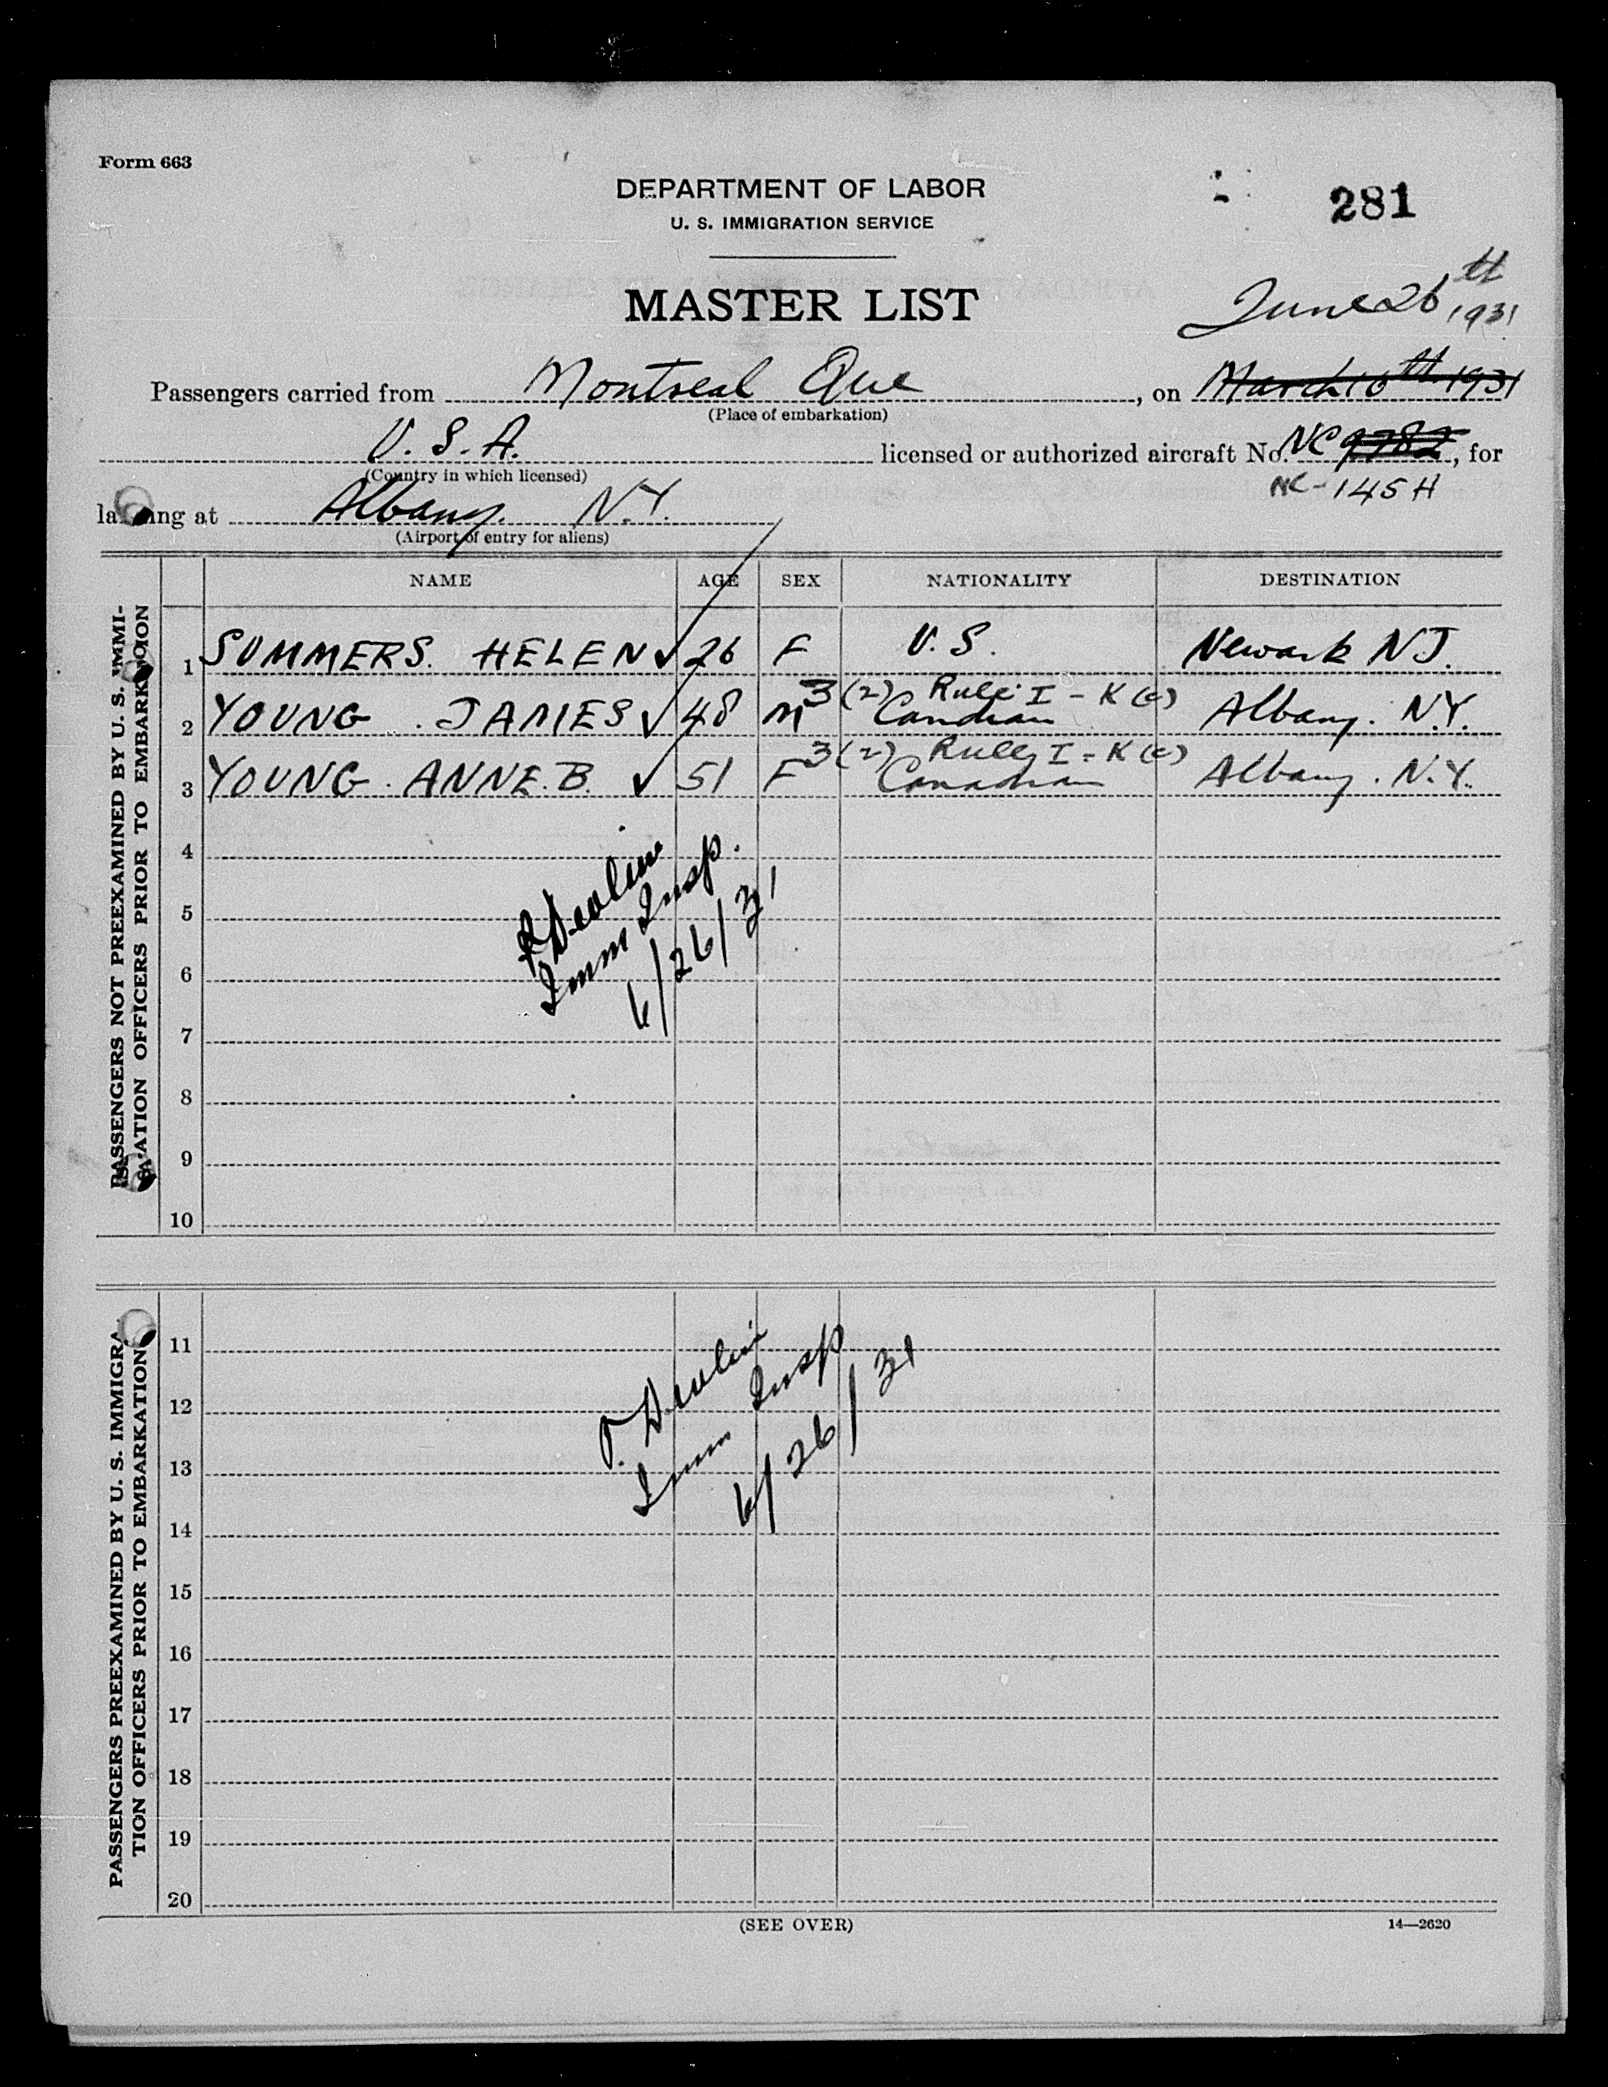 Form 663
DEPARTMENT OF LABOR
U. S. IMMIGRATION SERVICE
281
MASTER LIST
June 26th 1931
Passengers carried from Montreal Que, on March 16th 1931
(Place of embarkation)
U.S.A. licensed or authorized aircraft No. NC 9782, for
(Country in which licensed)
NC-145H
landing at Albany. N.Y.
(Airport of entry for aliens)
NAME AGE SEX NATIONALITY DESTINATION
PASSENGERS NOT PREEXAMINED BY U. S. IMMI-
GRATION OFFICERS PRIOR TO EMBARKATION
1 SUMMERS. HELEN ✓ 26 F U.S. Newark NJ.
3(2) Rule I - K(c)
2 YOUNG . JAMES ✓ 48 M Canadian Albany. N.Y.
3(2) Rule I - K(c)
3 YOUNG . ANNE. B. ✓ 51 F Canadian Albany. N.Y.
4
5
6
7
8
9
10
P Devlin
Imm Insp.
6/26/31
PASSENGERS PREEXAMINED BY U. S. IMMIGRA-
TION OFFICERS PRIOR TO EMBARKATION
11
12
13
14
15
16
17
18
19
20
P. Devlin
Imm Insp
6/26/31
(SEE OVER)
14—2620